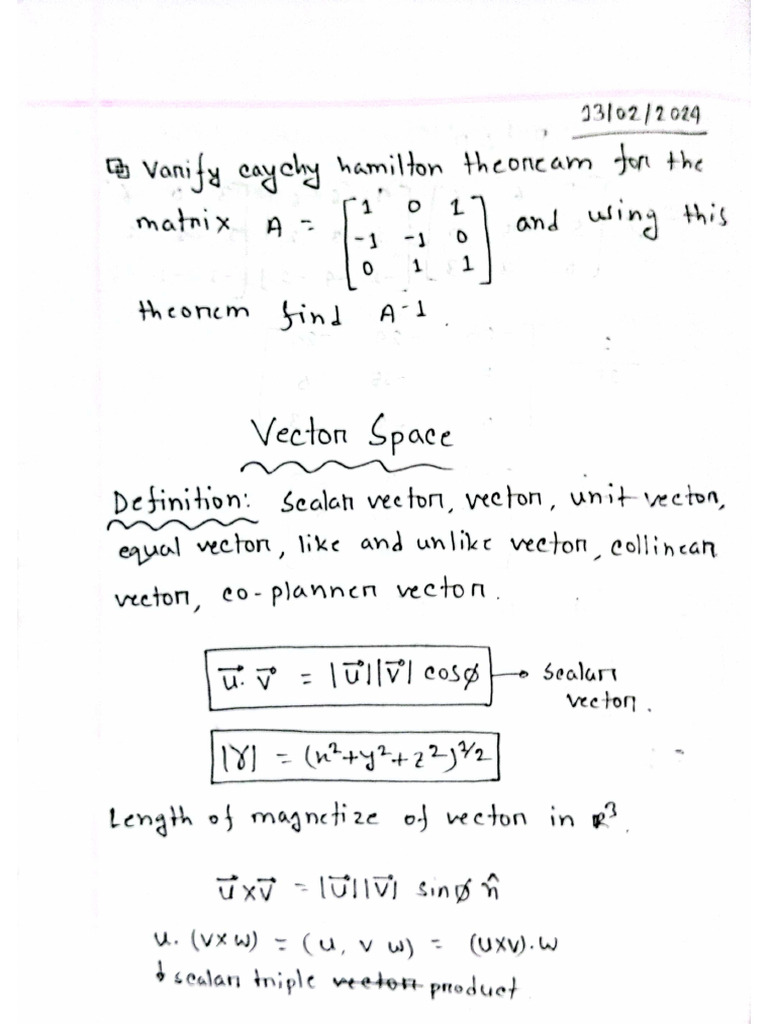 13/02/2024
Varify caychy hamilton theoream for the
matrix A = [1 0 1
-1 -1 0
0 1 1] and using this
theorem find A-1.
Vector Space
Definition: Scalar vector, vector, unit vector,
equal vector, like and unlike vector, collinear
vector, co-planner vector.
u⃗. v⃗ = |u⃗||v⃗| cosø → Scalar
vector.
|r| = (x²+y²+z²)^1/2
Length of magnetize of vector in R³.
u⃗×v⃗ = |u⃗||v⃗| sinø n̂
u. (v×w) = (u, v w) = (u×v).w
↓ scalar triple vector product